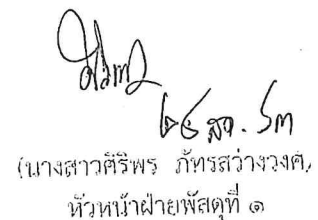 ๒๕ สค. ๖๓
(นางสาวศิริพร ภัทรสว่างวงศ์)
หัวหน้าฝ่ายพัสดุที่ ๑